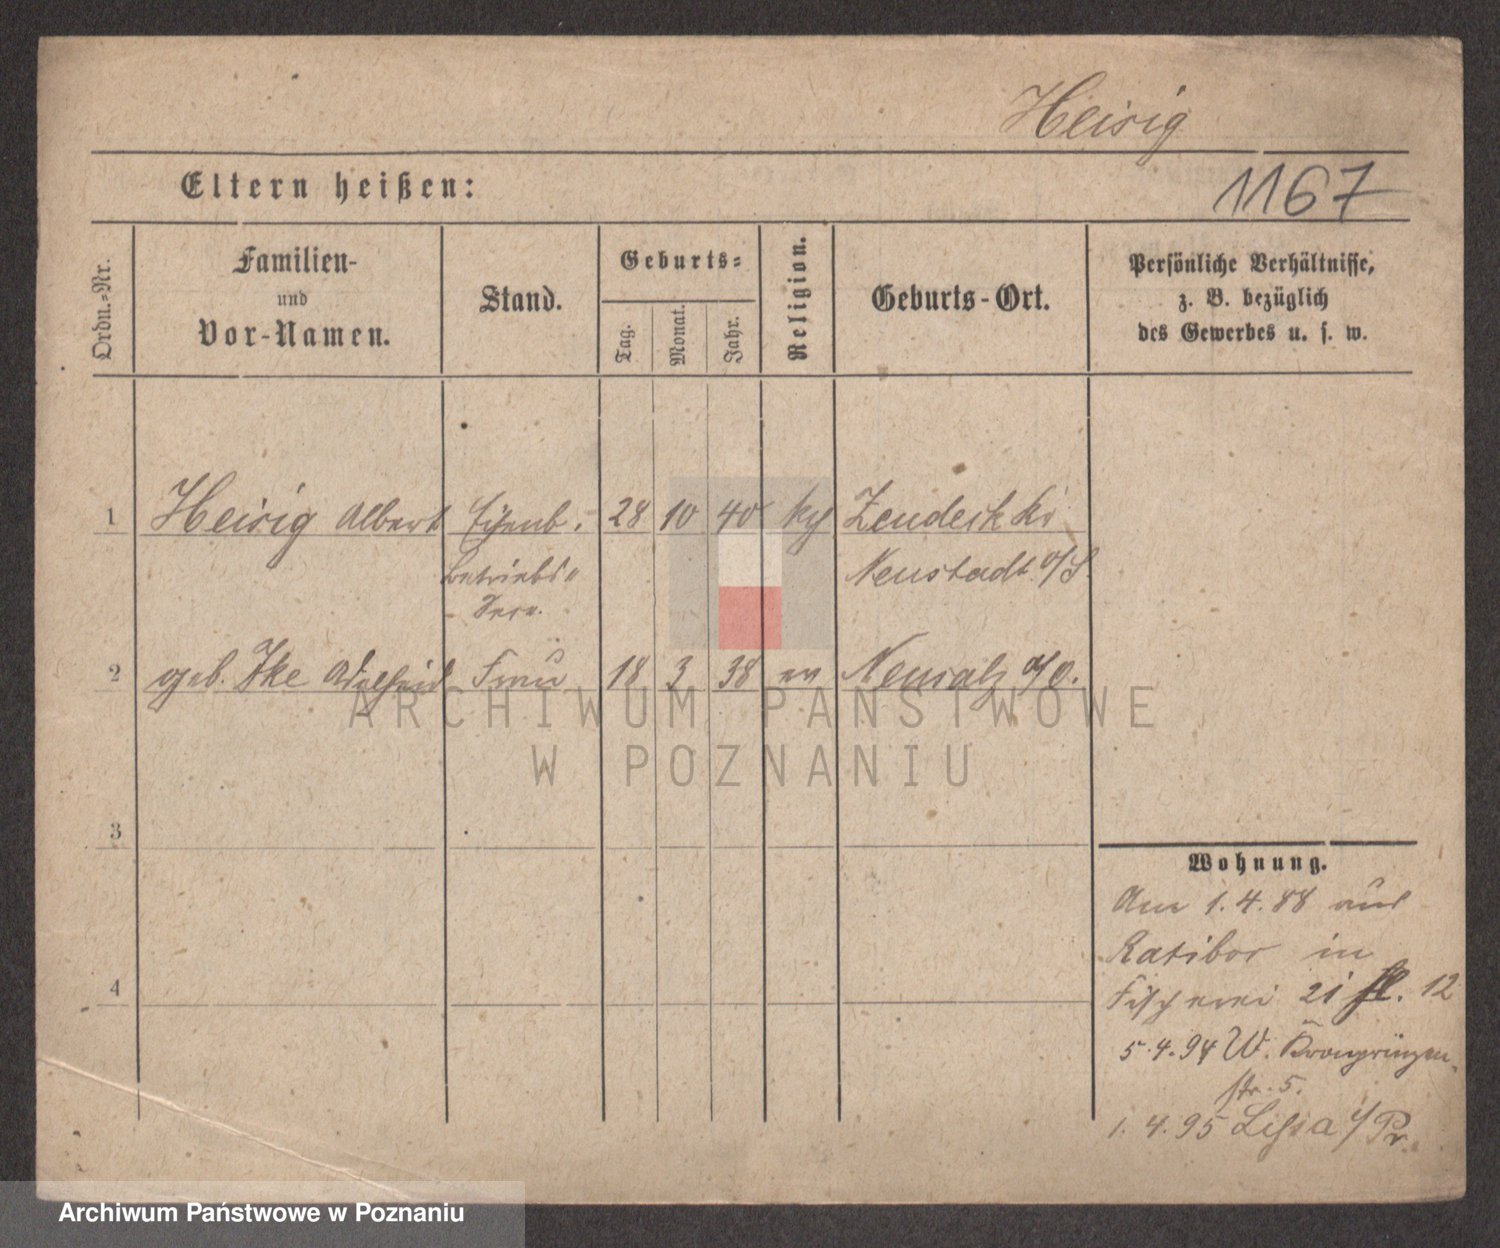 Heisig
Eltern heißen:
1167
Ordn.-Nr.
Familien-
und
Vor-Namen.
Stand.
Geburts-
Tag.
Monat.
Jahr.
Religion.
Geburts-Ort.
Persönliche Verhältnisse,
z. B. bezüglich
des Gewerbes u. s. w.
1 Heisig Albert Eisenb. 28 10 40
Betriebs
Neustadt o/S
2 geb. Ike Adelheid Frau 18 3 38 ev Neusalz a/O.
ARCHIWUM PAŃSTWOWE
W POZNANIU
3
4
Wohnung.
Am 1.4.88 aus
Ratibor in
Fischerei 21 12
5.4.94 W. Kronprinzen
str. 5.
1.4.95 Lissa i/Pr.
Archiwum Państwowe w Poznaniu